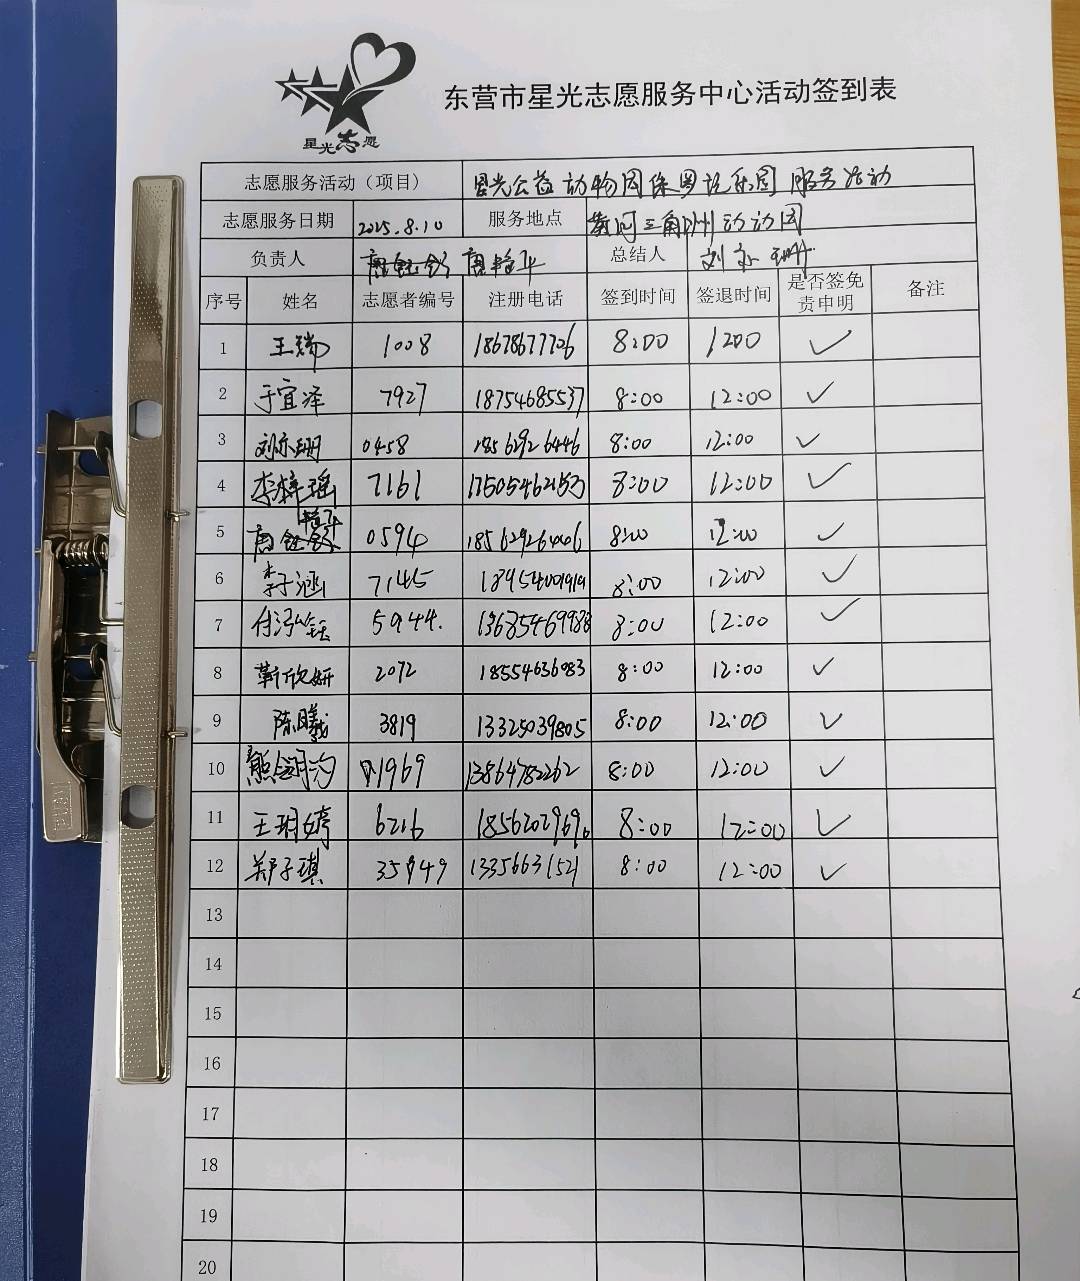 星光志愿
东营市星光志愿服务中心活动签到表
志愿服务活动（项目） 星光公益动物园保粤说乐园服务活动
志愿服务日期 2025.8.10 服务地点 黄河三角洲动动园
负责人 总结人 刘亦珊
序号 姓名 志愿者编号 注册电话 签到时间 签退时间 是否签免责申明 备注
1 王瑞 1008 18678677726 8:00 1200 ✓
2 于宜泽 7927 18754685537 8:00 12:00 ✓
3 刘亦珊 0458 18562926446 8:00 12:00 ✓
4 李梓瑶 7161 8:00 12:00 ✓
5 0594 18562926446 8:00 12:00 ✓
6 李子涵 7145 18954001919 8:00 12:00 ✓
7 付泓钰 5944. 13685469988 8:00 12:00 ✓
8 靳欣妍 2072 18554636083 8:00 12:00 ✓
9 陈曦 3819 13325039805 8:00 12:00 ✓
10 1969 13864782262 8:00 12:00 ✓
11 王玥婷 6216 18562029696 8:00 12:00 ✓
12 郑子琪 13356631521 8:00 12:00 ✓
13
14
15
16
17
18
19
20